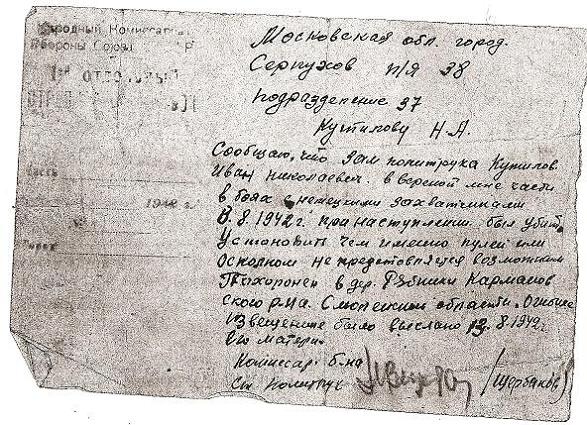 Народный Комиссариат
Обороны Союза
1942 г.
Московская обл. город.
Серпухов п/я 38
подразделение 37
Кутилову Н.А.
Сообщаю, что зам политрука Кутилов.
Иван Николаевич. в вереной мне части
в боях с немецкими захватчиками
8.1942 г. при наступлении был убит,
Установить чем именно пулей или
Осколком не представляется возможным
Похоронен в дер. Рябинки Карманов
ского р-на. Смоленской области. О
извещение было выслано 13.8.1942г.
Его матери.
Комиссар б-на
Ст. политрук /Щербаков/